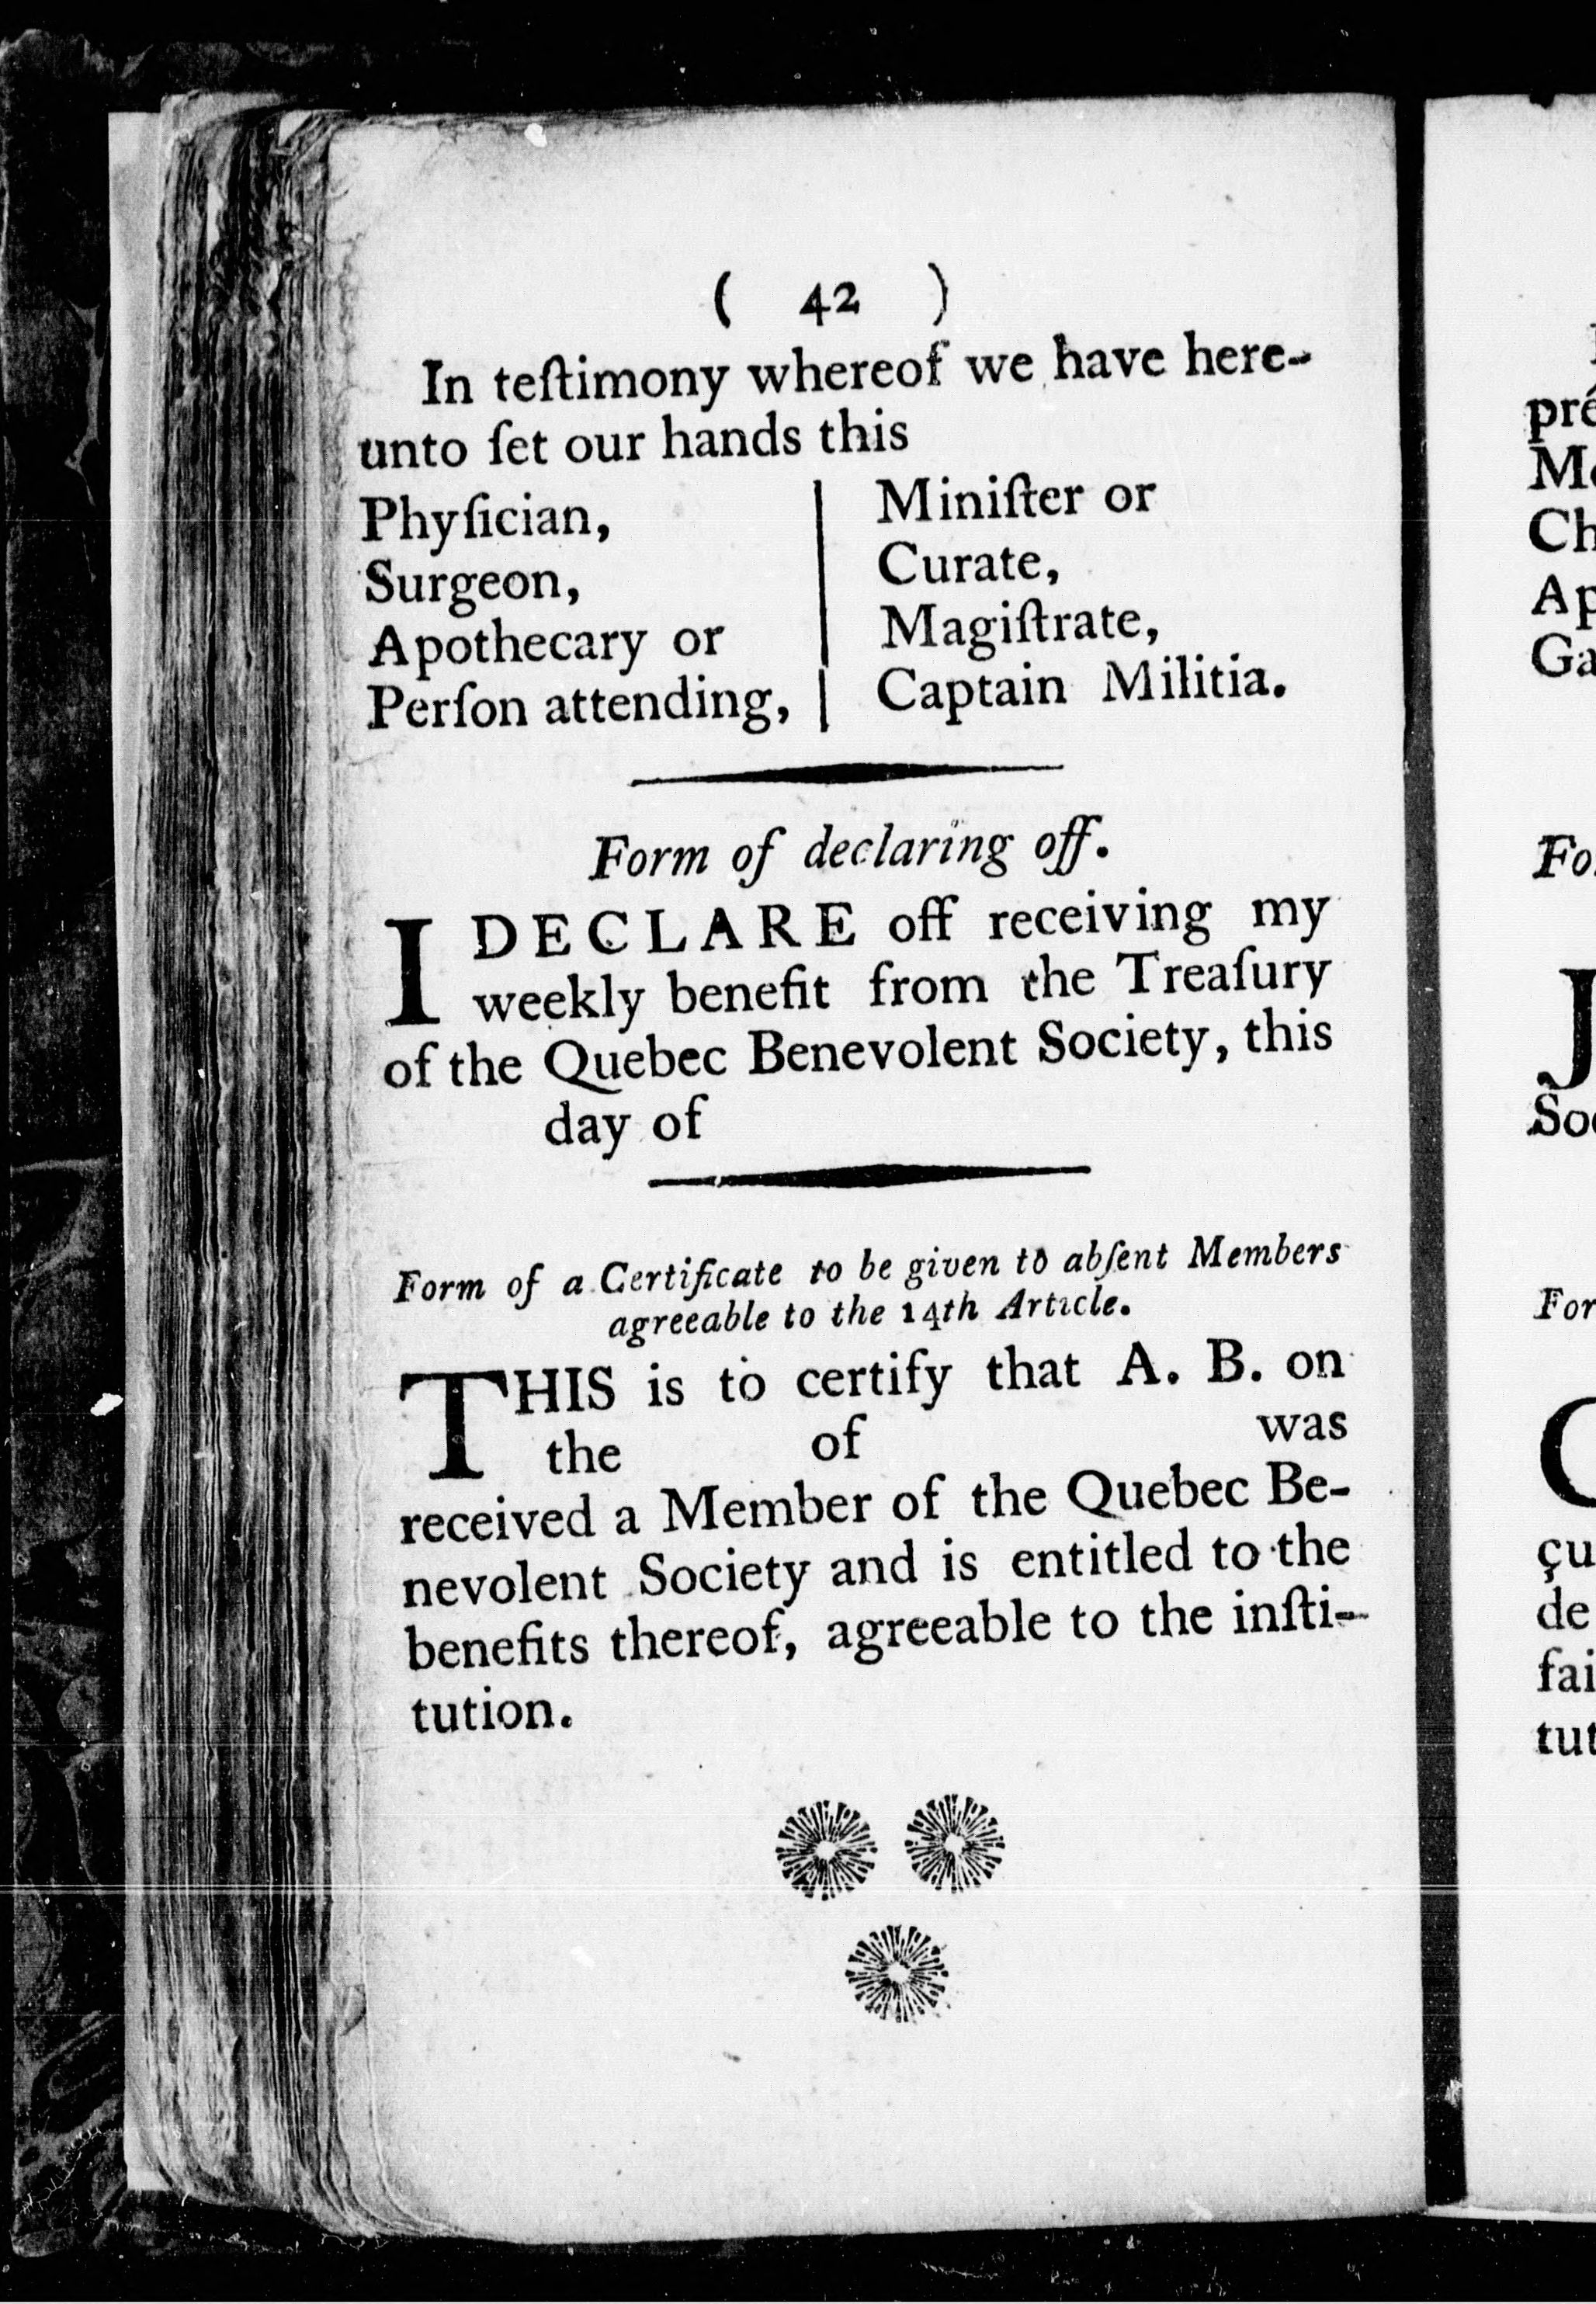 ( 42 )
In teſtimony whereof we have here-
unto ſet our hands this
Phyſician,
Surgeon,
Apothecary or
Perſon attending,
Miniſter or
Curate,
Magiſtrate,
Captain Militia.
Form of declaring off.
I DECLARE off receiving my
weekly benefit from the Treaſury
of the Quebec Benevolent Society, this
day of
Form of a Certificate to be given to abſent Members
agreeable to the 14th Article.
THIS is to certify that A. B. on
the of was
received a Member of the Quebec Be-
nevolent Society and is entitled to the
benefits thereof, agreeable to the inſti-
tution.
pré
Ch
Ap
Ga
Fo
J
So
For
çu
de
fai
tut